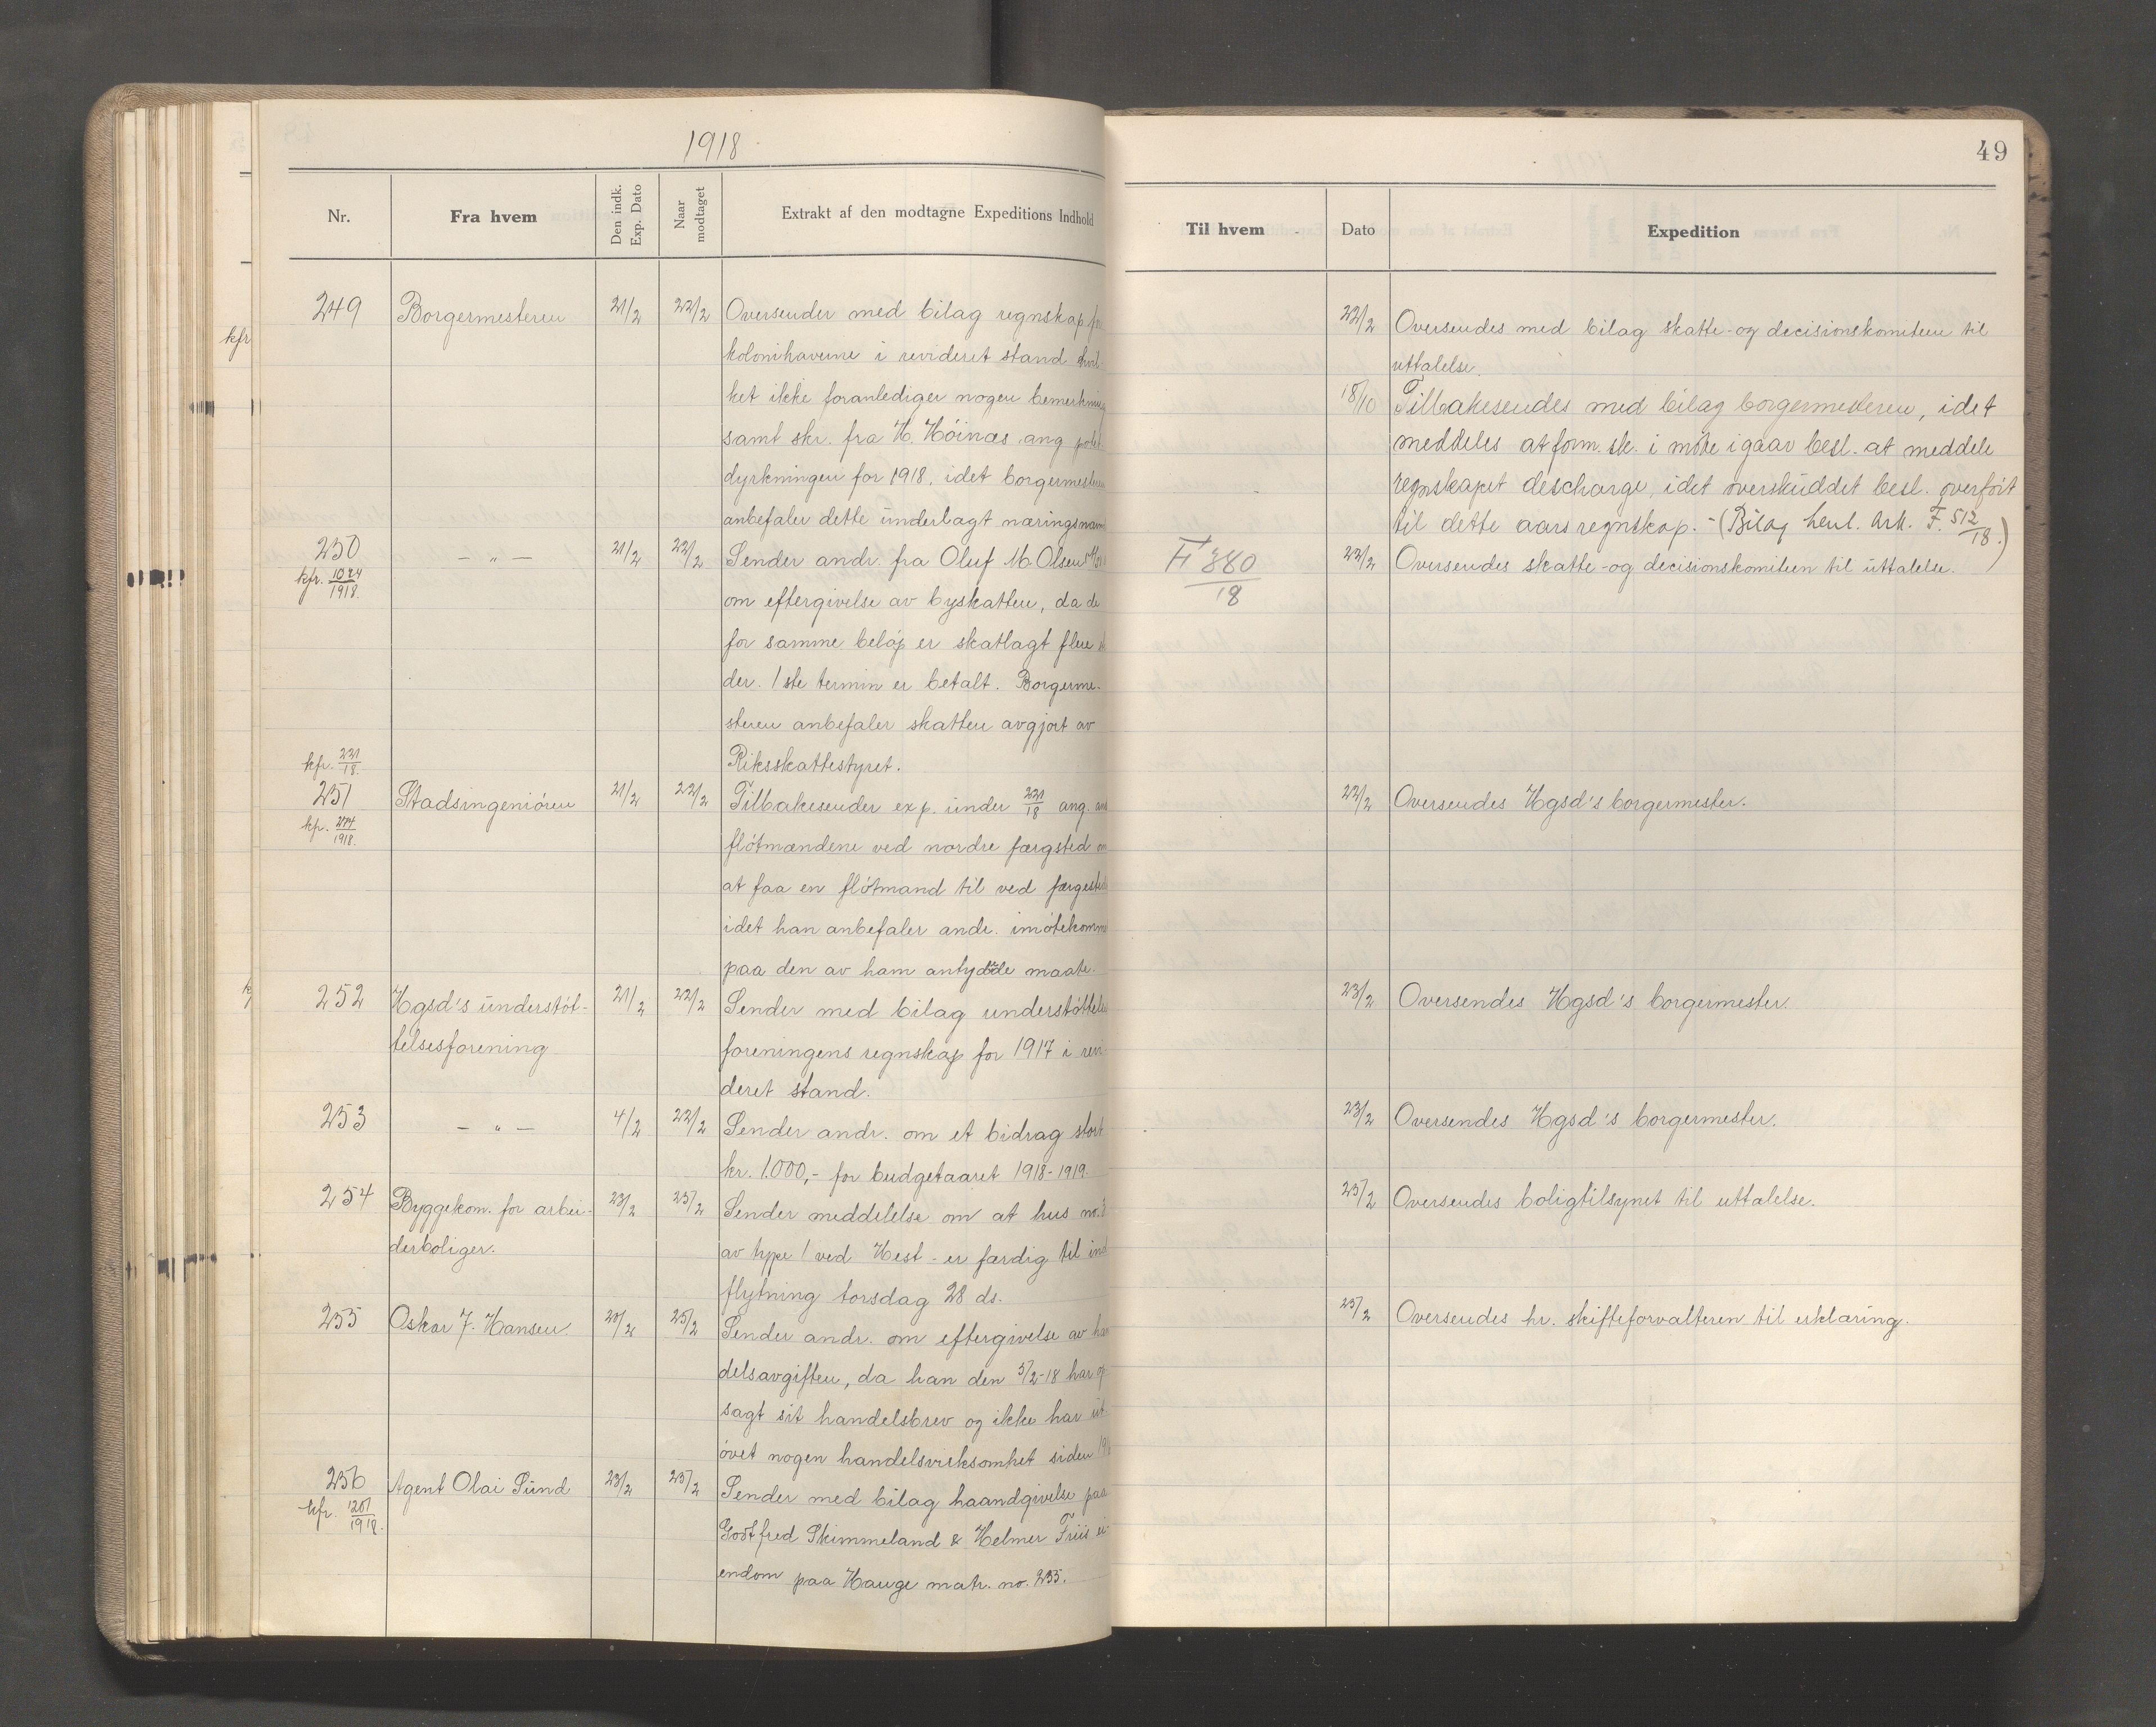 1918
Nr.
Fra hvem
Den indk. Exp. Dato
Naar modtaget
Extrakt af den modtagne Expeditions Indhold
249 Borgermesteren 21/2 22/2 Oversender med bilag regnskap
kolonihaverne i revideret stand hvil-
ket ikke foranlediger nogen
samt skr. fra H. Höinæs ang
dyrkningen for 1918, idet borgermesteren
anbefaler dette underlagt
250 — „ — 21/2 22/2 Sender andr. fra Oluf M. Olsen
kfr. 1024/1918.
om eftergivelse av byskatten, da
for samme beløp er skatlagt flere
der. 1ste termin er betalt. Borgerme-
steren anbefaler skatten avgjort av
Riksskattestyret.
kfr. 221/18.
251 Stadsingeniören 21/2 22/2 Tilbakesender exp. under 221/18 ang.
kfr. 274/1918.
flötmændene ved nordre færgsted
at faa en flötmand til ved
idet han anbefaler andr.
paa den av ham antydede maate.
252 Hgsd's understöt- 21/2 22/2 Sender med bilag
telsesforening
foreningens regnskap for 1917 i revi-
deret stand.
253 — „ — 4/2 22/2 Sender andr. om et bidrag stort
kr. 1.000,- for budgetaaret 1918-1919.
254 Byggekom. for arbei- 23/2 25/2 Sender meddelelse om at hus no.
derboliger.
av type 1 ved Hest - er færdig til ind
flytning torsdag 28 ds.
255 Oskar J. Hansen 20/2 25/2 Sender andr. om eftergivelse av han
delsavgiften, da han den 5/2-18 har op-
sagt sit handelsbrev og ikke har ut
övet nogen handelsvirksomhet siden
256 Agent Olai Sund 23/2 25/2 Sender med bilag haandgivelse paa
kfr. 1201/1918.
Godtfred Skimmeland & Helmer Friis ei-
endom paa Hauge matr. no. 235.
49
Til hvem
Dato
Expedition
22/2 Oversendes med bilag skatte- og decisionskomiteen til
uttalelse.
18/10 Tilbakesendes med bilag borgermesteren, idet
meddeles at form. sk. i möte igaar besl. at meddele
regnskapet descharge, idet overskuddet besl. overfört
til dette aars regnskap. - (Bilag henl. Ark. F. 512/18.)
F 380/18
22/2 Oversendes skatte- og decisionskomiteen til uttalelse.
22/2 Oversendes Hgsd's borgermester.
23/2 Oversendes Hgsd's borgermester.
23/2 Oversendes Hgsd's borgermester.
25/2 Oversendes boligtilsynet til uttalelse.
25/2 Oversendes hr. skifteforvalteren til erklæring.
kfr